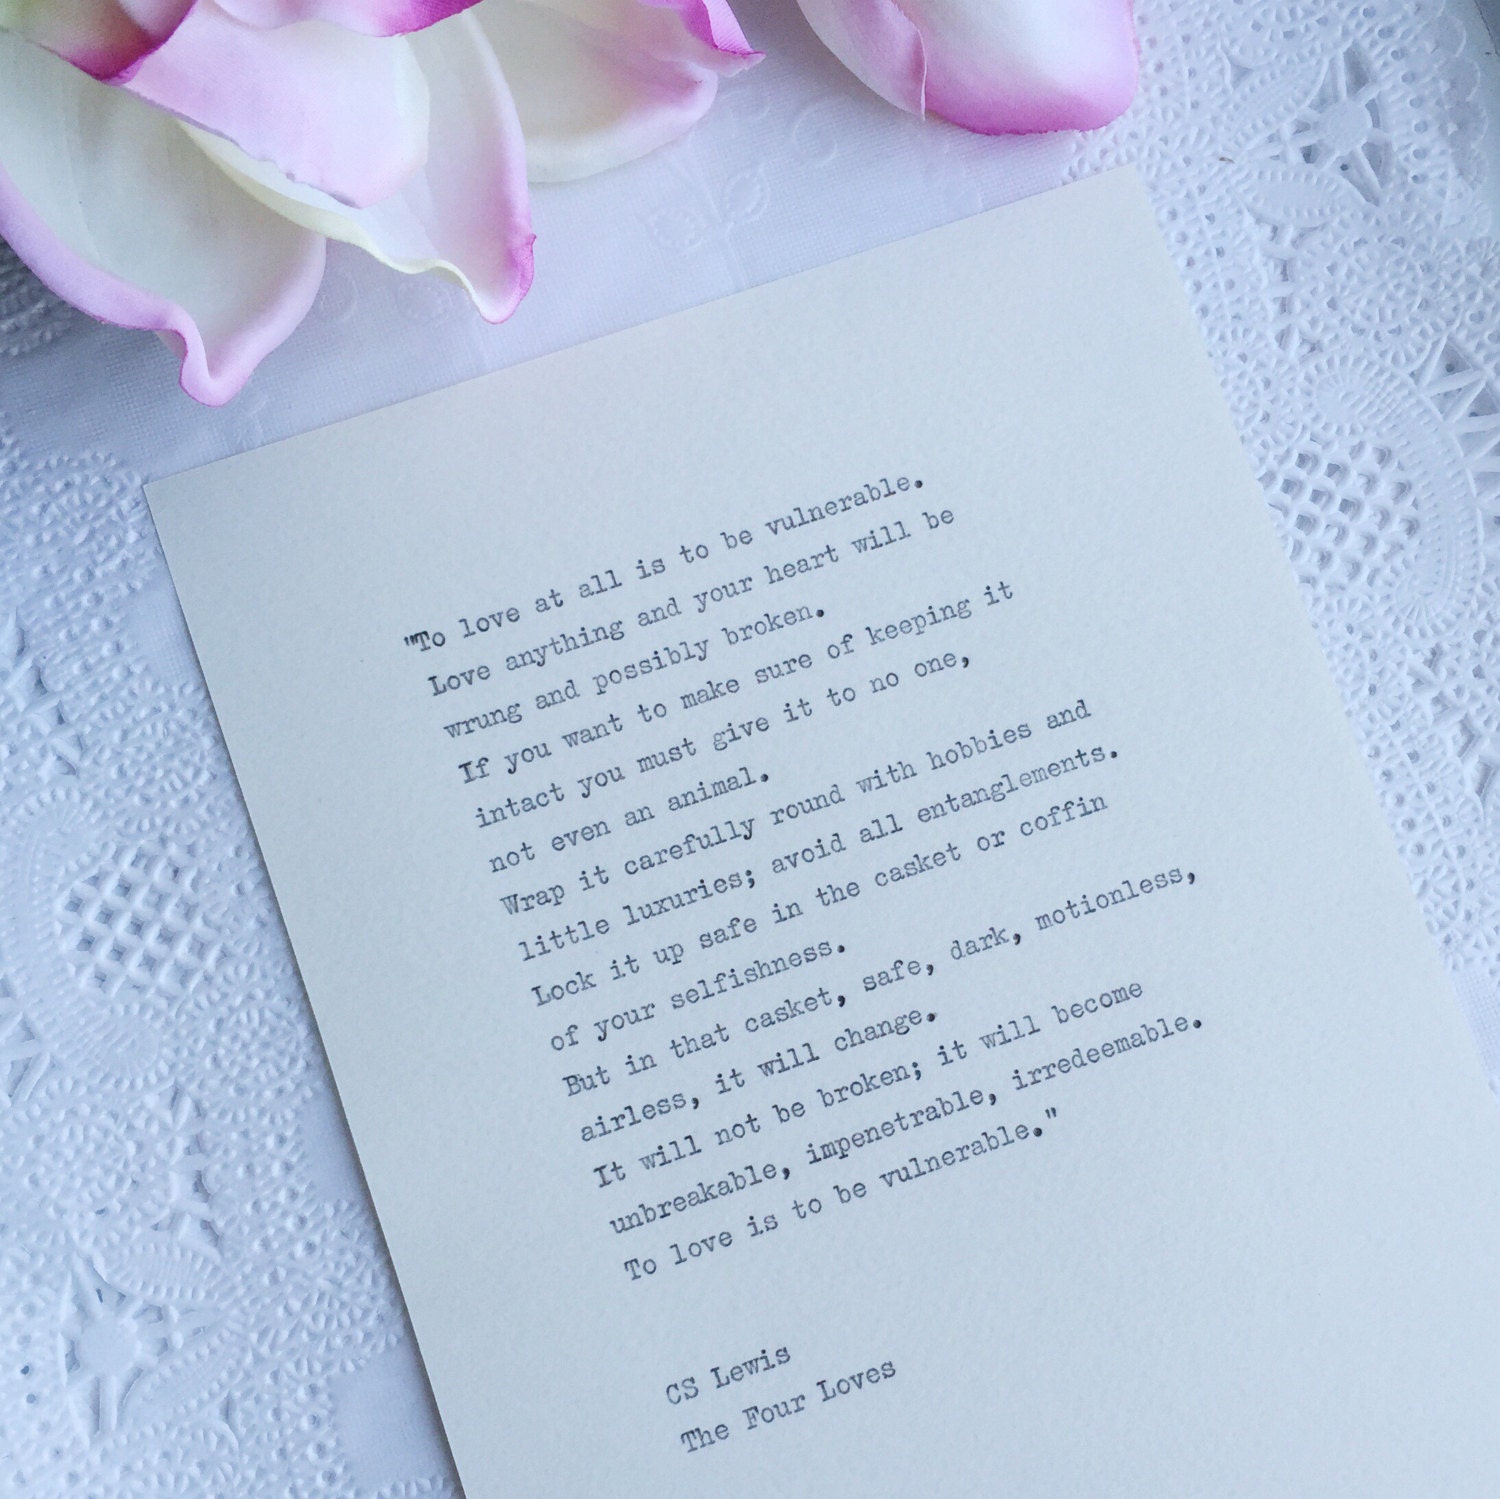 "To love at all is to be vulnerable.
Love anything and your heart will be
wrung and possibly broken.
If you want to make sure of keeping it
intact you must give it to no one,
not even an animal.
Wrap it carefully round with hobbies and
little luxuries; avoid all entanglements.
Lock it up safe in the casket or coffin
of your selfishness.
But in that casket, safe, dark, motionless,
airless, it will change.
It will not be broken; it will become
unbreakable, impenetrable, irredeemable.
To love is to be vulnerable."
CS Lewis
The Four Loves